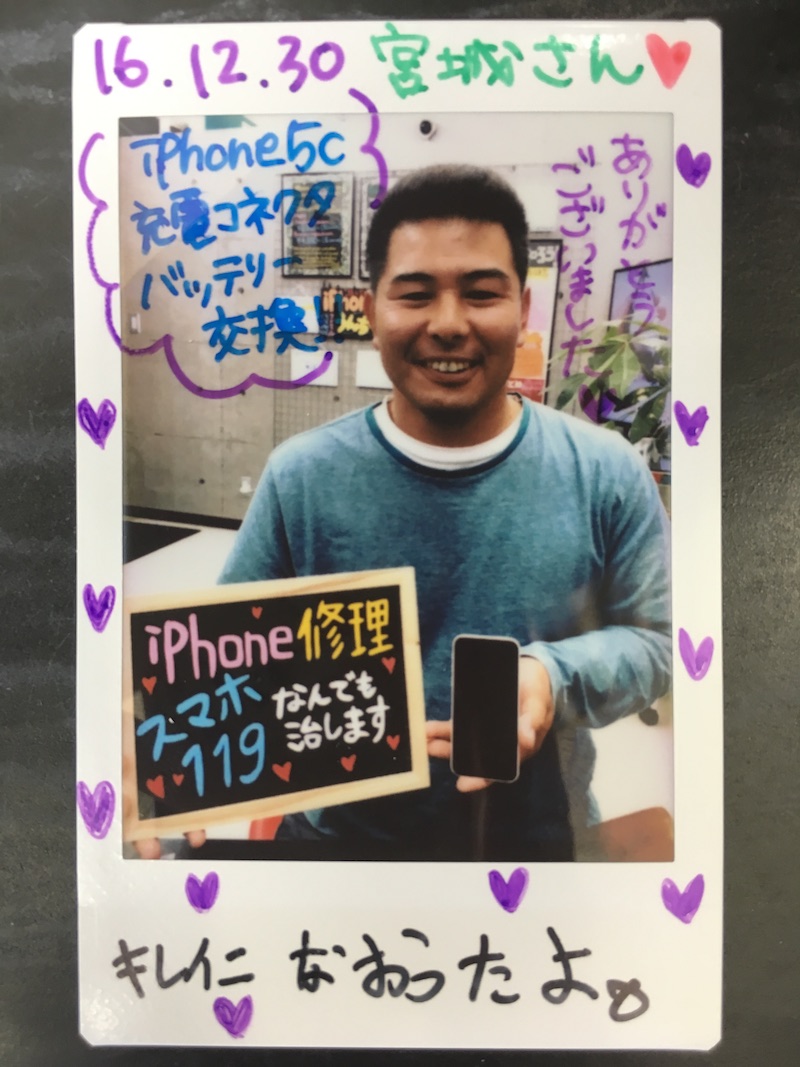 16.12.30 宮城さん
iPhone5c
充電コネクタ
バッテリー
交換!!
ありがとう
ございました
iPhone修理
スマホ
119
なんでも
治します
キレイニ なおったよ。